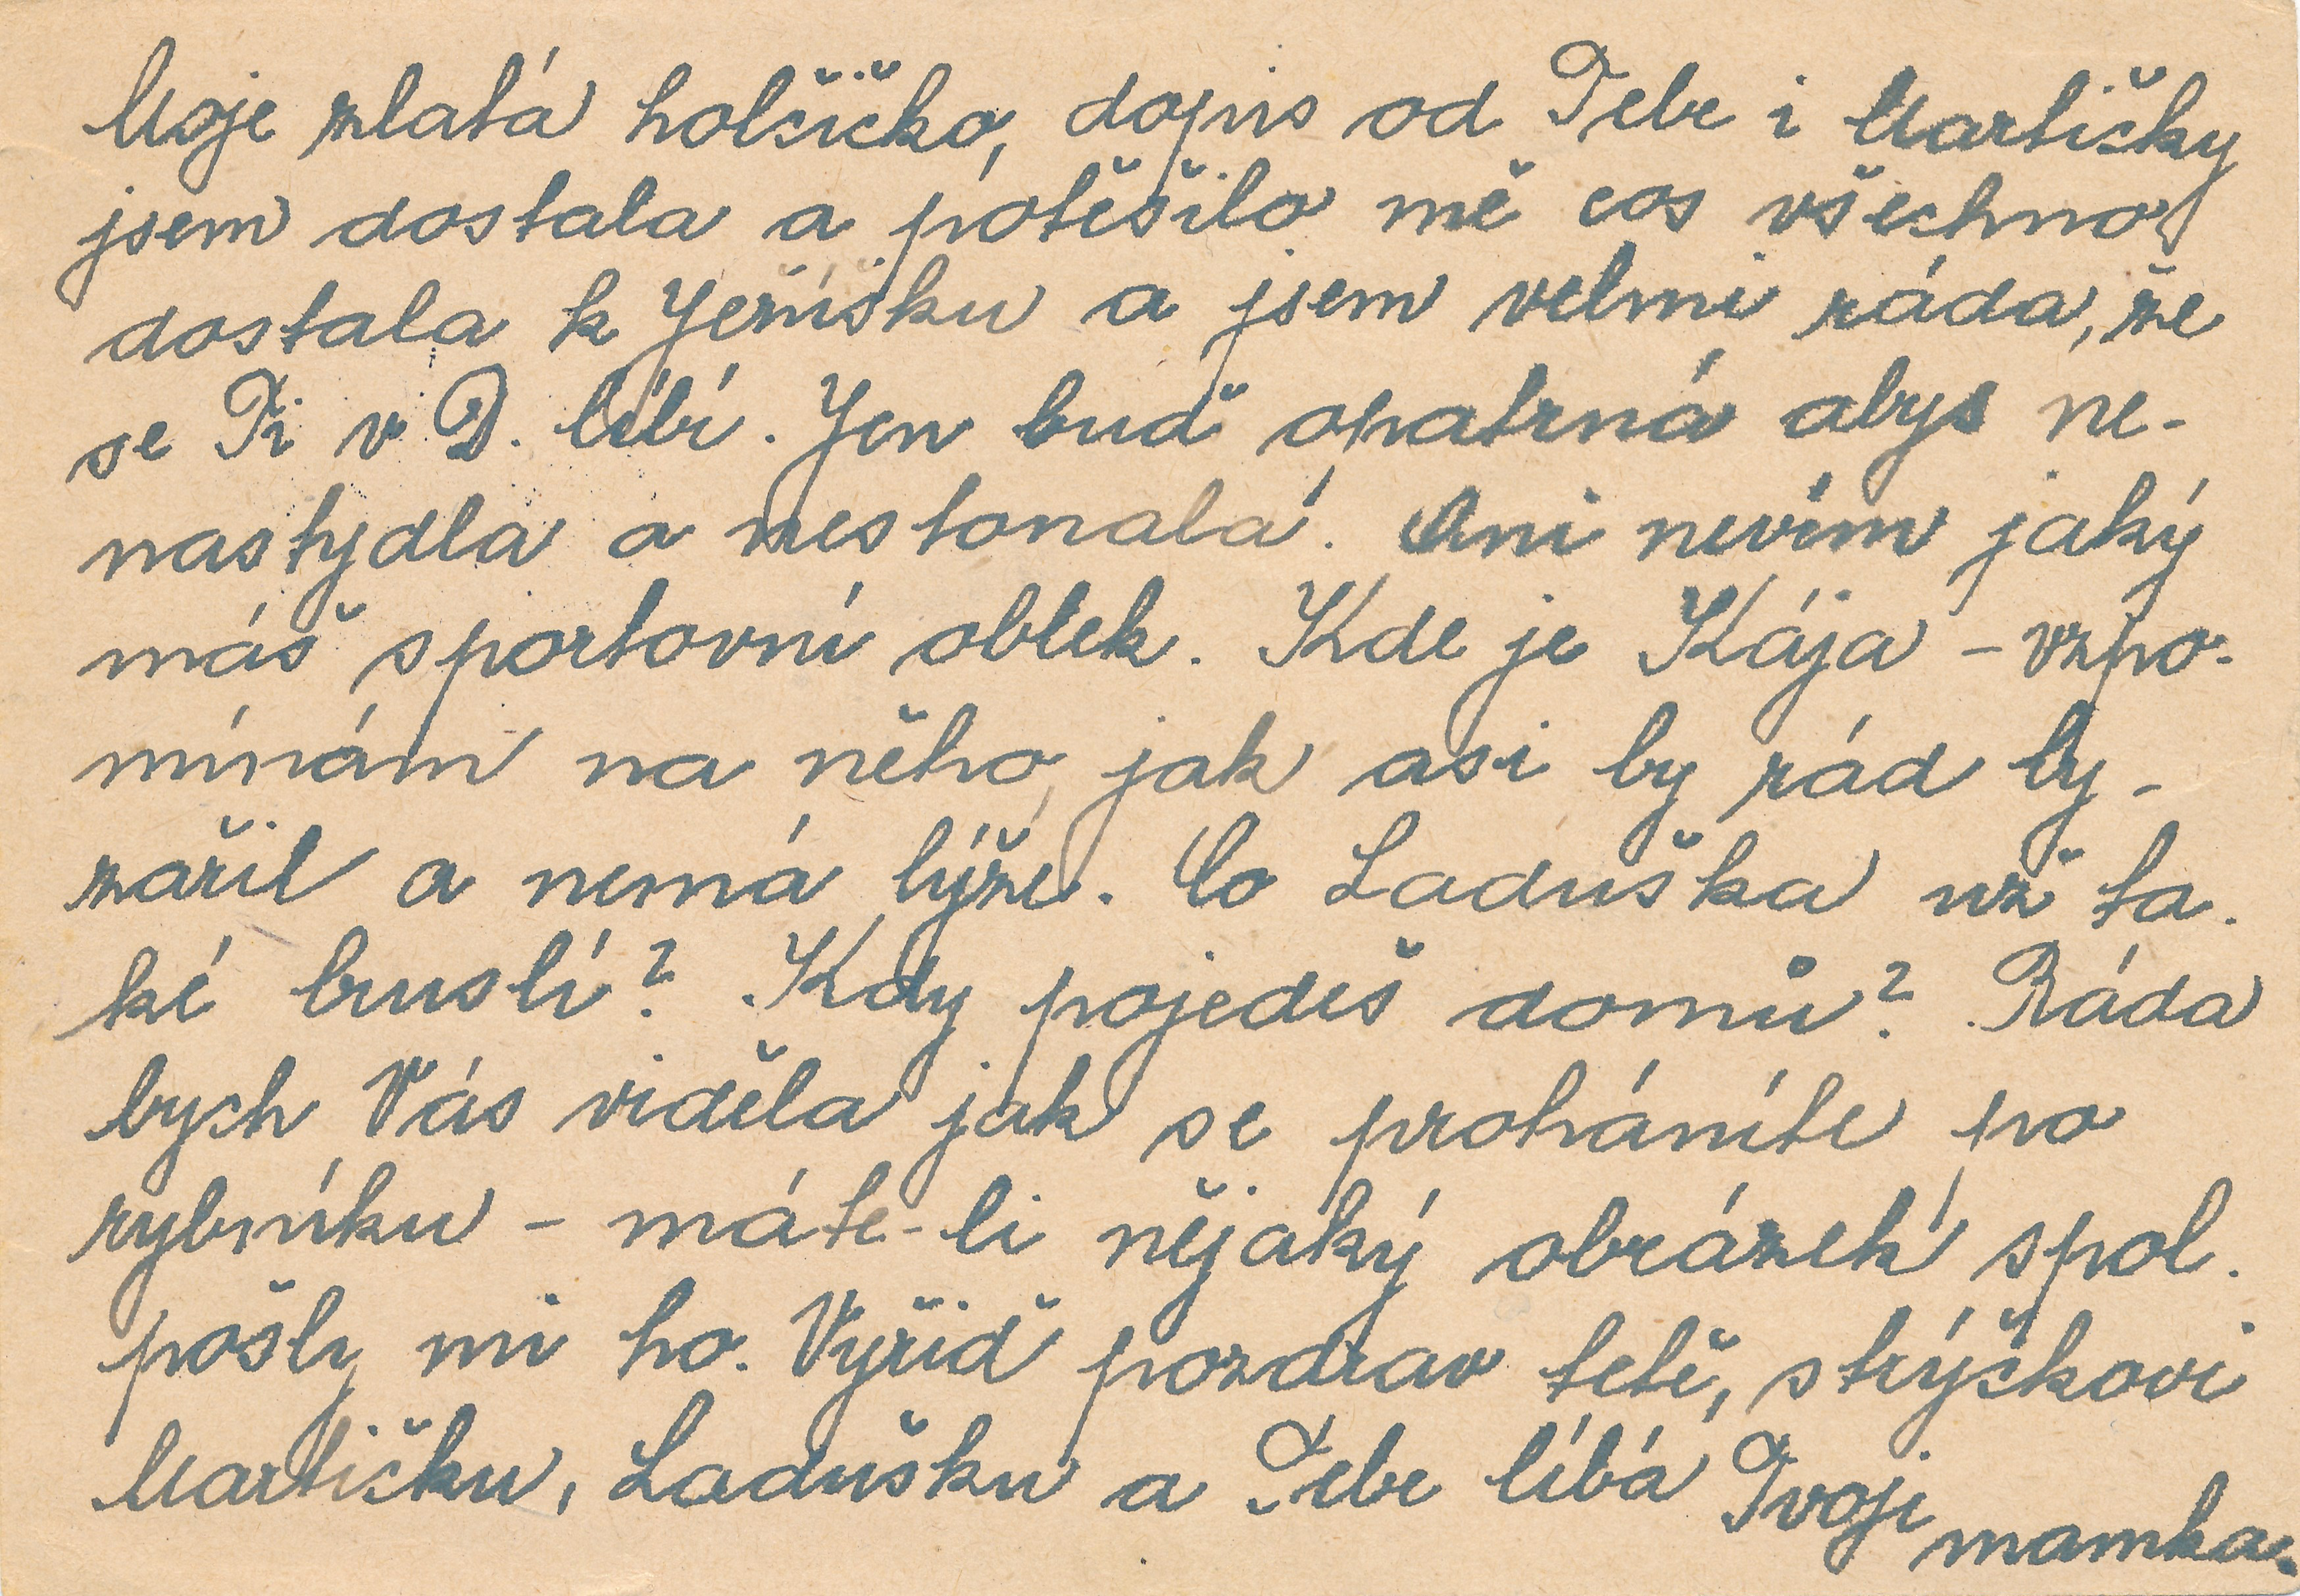 Moje zlatá holčičko, dopis od Tebe i Martičky
jsem dostala a potěšilo mě cos všechno
dostala k Ježíšku a jsem velmi ráda, že
se Ti v D. líbí. Jen buď opatrná abys ne-
nastydla a nestonala. Ani nevím jaký
máš sportovní oblek. Kde je Kája - vzpo-
mínám na něho, jak asi by rád ly-
zařil a nemá lýže. Co Laduška už ta-
ké bruslí? Kdy pojedeš domů? Ráda
bych Vás viděla jak se proháníte po
rybníku - máte-li nějaký obrázek spol.
pošly mi ho. Vyřiď pozdrav tetě, strýčkovi
Martičku, Ladušku a Tebe líbá Tvoje
mamka.